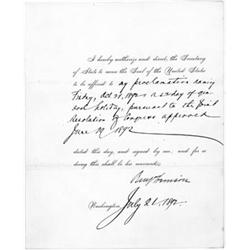 I hereby authorize and direct the Secretary
of State to cause the Seal of the United States
to be affixed to my proclamation naming
Friday, Oct 21, 1892 as a day of gen-
eral holiday, pursuant to the Joint
Resolution of Congress approved
June 29 1892
dated this day, and signed by me; and for so
doing this shall be his warrant.
Benj Harrison
Washington, July 21 1892.